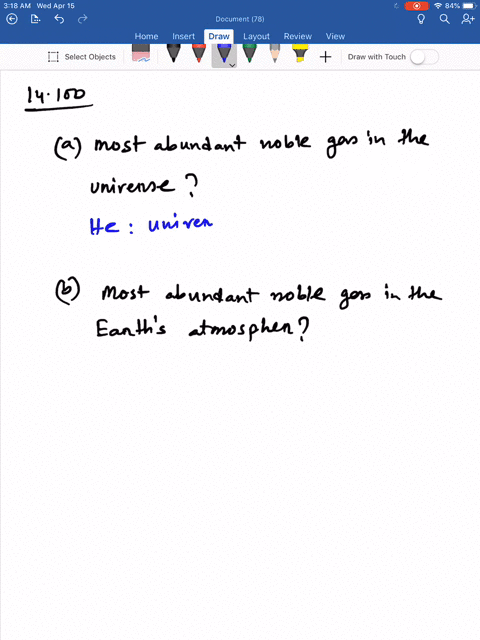 3:18 AM Wed Apr 15
84%
Document (78)
Home Insert Draw Layout Review View
Select Objects
Draw with Touch
14.100
(a) most abundant noble gas in the
universe ?
He : univer
(b) Most abundant noble gas in the
Earth's atmospher ?